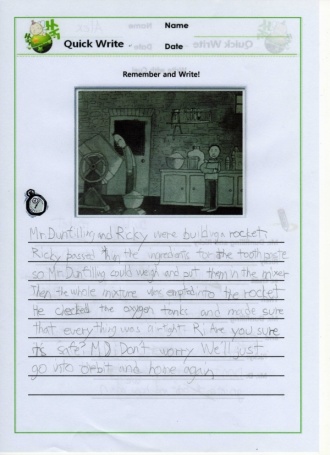 Name
Quick Write
Date
Remember and Write!
Mr. Duntilling and Ricky were building a rocket.
Ricky passed him the ingredients for the tooth paste
so Mr. Duntilling could weigh and put them in the mixer
Then the whole mixture was emptied into the rocket
He checked the oxygen tanks and made sure
that everything was alright. R: Are you sure
it's safe? M.D: Don't worry We'll just
go into orbit and home again